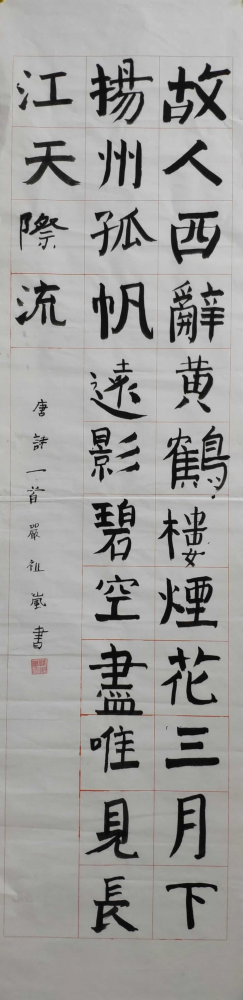 故人西辭黃鶴樓煙花三月下
揚州孤帆遠影碧空盡唯見長
江天際流
唐詩一首嚴祖嵐書